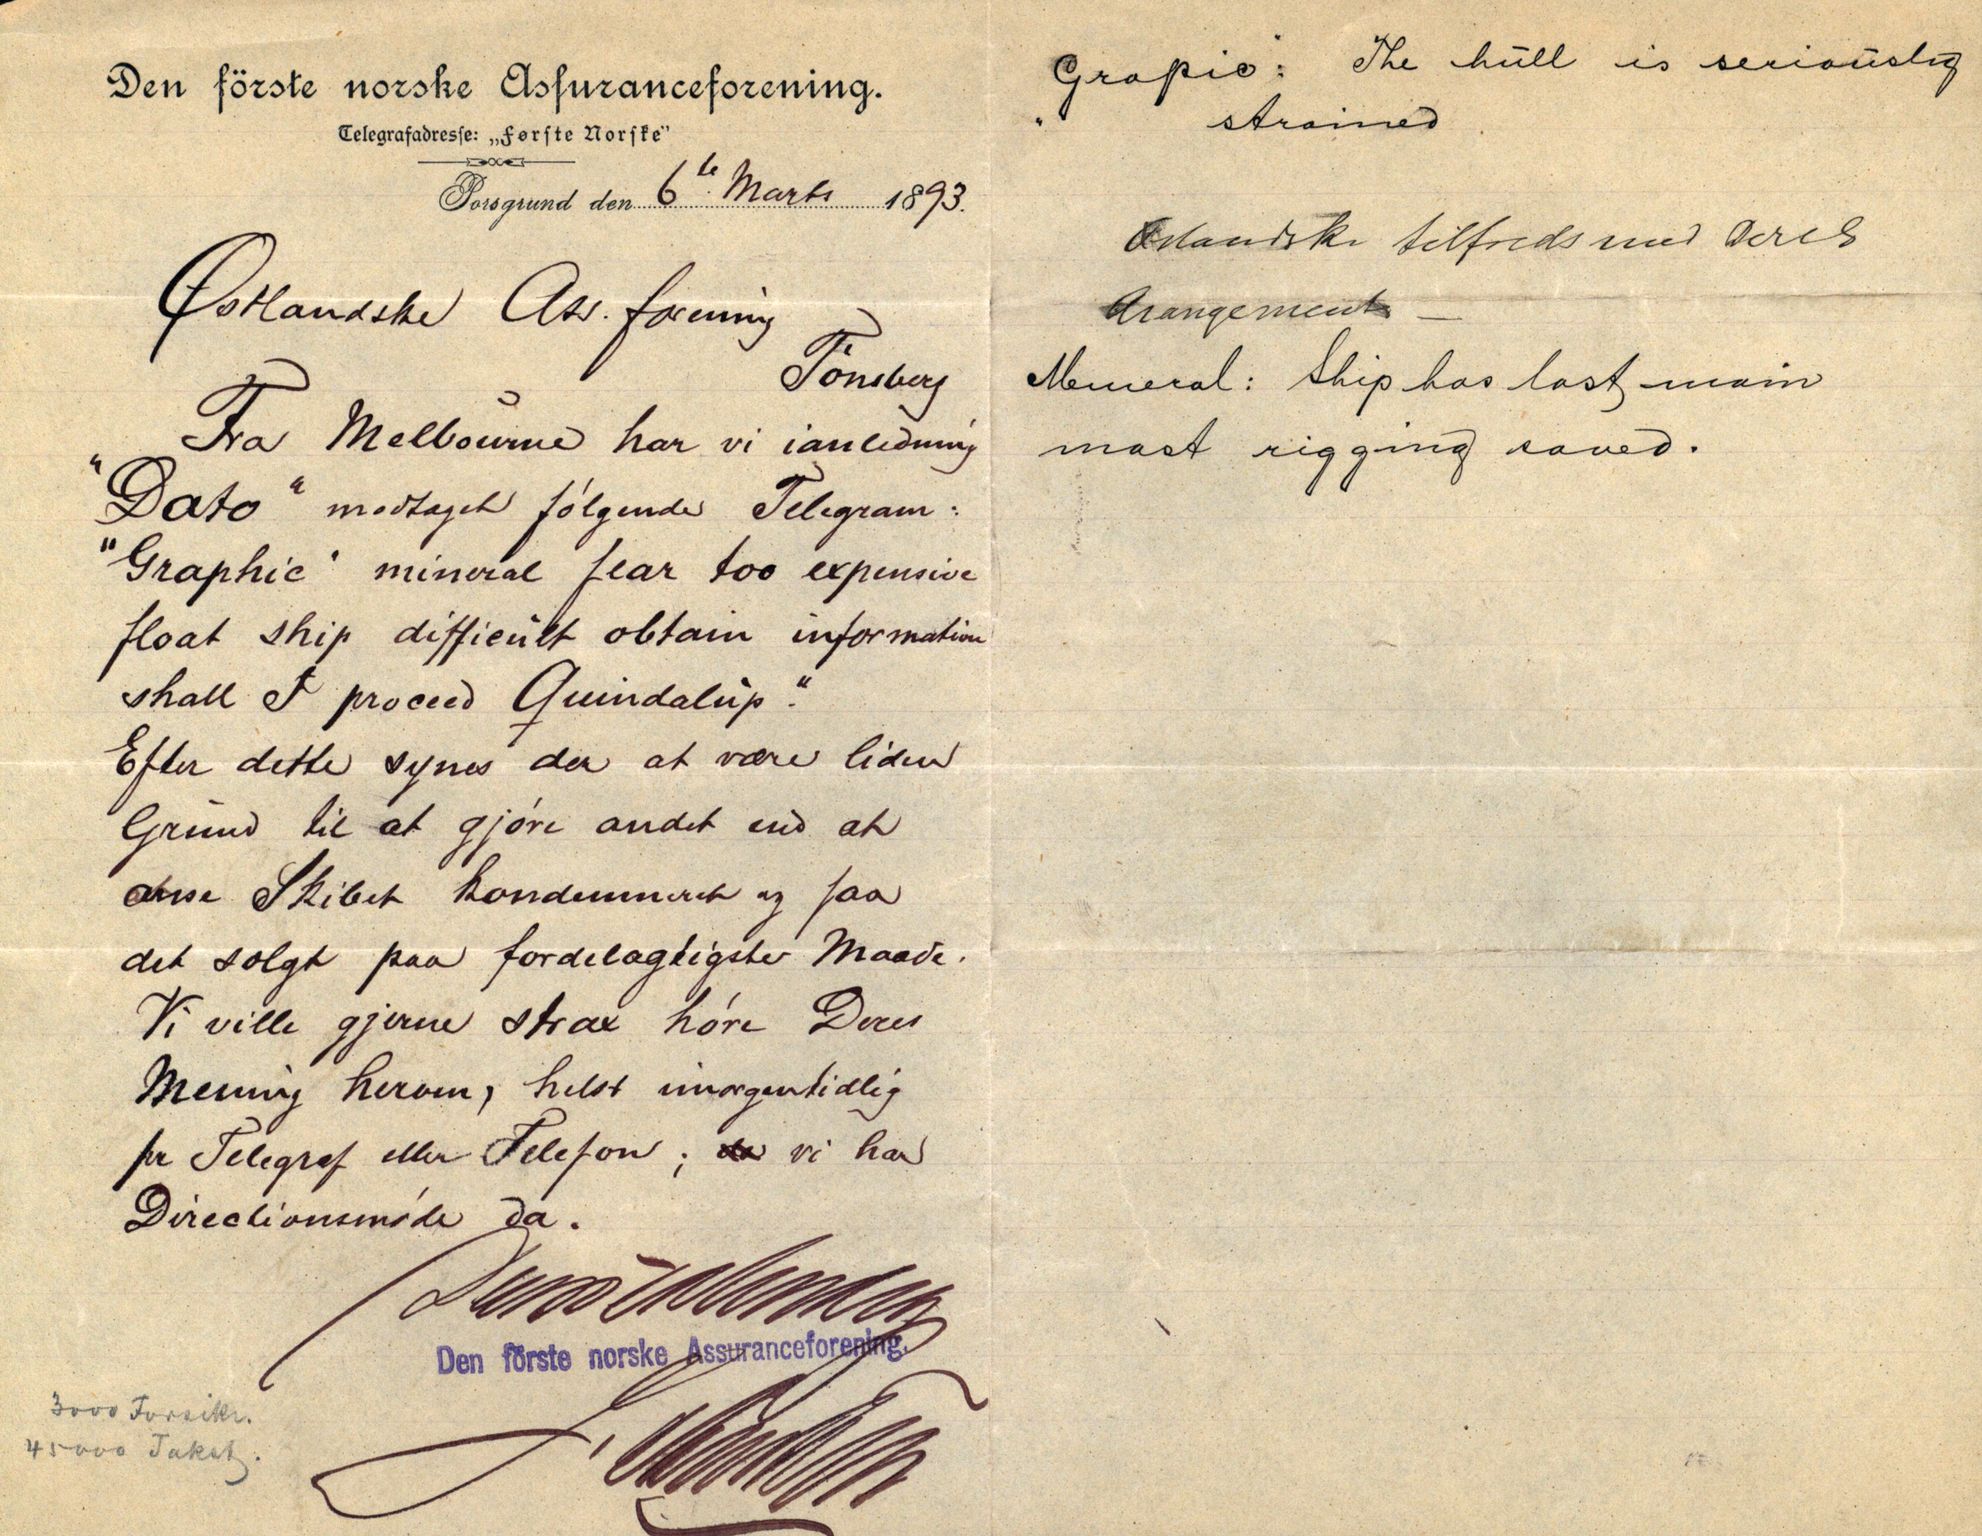 Den förste norske Assuranceforening.
Telegrafadresse: „Første Norske"
Porsgrund den 6te Marts 1893.
Østlandske Ass. forening
Tönsberg
Fra Melbourne har vi ianledning
"Dato" modtaget følgende Telegram:
"Graphic" mineral fear too expensive
float ship difficult obtain information
shall I proceed Quindalup."
Efter dette synes der at være liden
Grund til at gjøre andet end at
anse Skibet kondemneret og faa
det solgt paa fordelagtigste Maade.
Vi ville gjerne strax høre Deres
Mening herom, helst imorgentidlig
pr Telegraf eller Telefon; vi har
Directionsmøde da.
Den förste norske Assuranceforening.
3000 Forsikr.
45000 Takst.
"Grapic": The hull is seriously
strained
Østlandske tilfreds med Deres
Arangement —
Meneral: Ship has lost main
mast rigging saved.